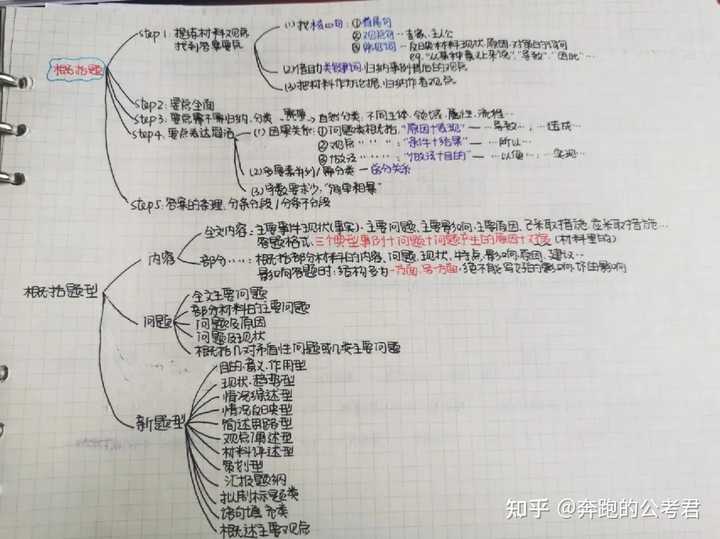 概括题
step 1: 提炼材料观点 找到答案要点
(1) 找核心句: ①首尾句
②观点句 — 专家、主人公
③
eg. "从某种意义上来说" "导致" "因此" …
(2) 借助关联词, 归纳事例背后的观点
(3) 把材料作为论据, 归纳作者观点
step2: 要点全面
step3: 要点需不需归纳、分类 自然分类, 不同主体、领域、属性、流程…
step4: 要点表达简洁
(1) 因果关系: ①问题类概括: "原因+表现" — …导致…, …造成…
②观点 〃 〃 〃: "条件+结果" — …所以…
③做法 〃 〃 〃: "做法+目的" — …以便…, …实现…
(2) 多要素并列/需分类 — 总分关系
(3) 字数要求少, "简单粗暴"
step5: 答案的条理, 分条分段/分条不分段
概括题型
内容
全文内容: 主要事件现状(事实)、主要问题、主要影响、主要原因、已采取措施、应采取措施…
答题格式: 三个典型事例+问题+问题产生的原因+对策 (材料里的)
部分……: 概括部分材料的内容, 问题、现状、特点、影响、原因、建议…
影响答题时: 结构多为一方面, 另一方面,
问题
全文主要问题
部分材料的主要问题
问题及原因
问题及现状
概括几对矛盾性问题或几类主要问题
新题型
目的、意义、作用型
现状、趋势型
情况综述型
情况反映型
简述思路型
观点阐述型
材料评述型
策划型
汇报题纲
拟制标题类
语句填充类
概述主要观点
知乎 @奔跑的公考君